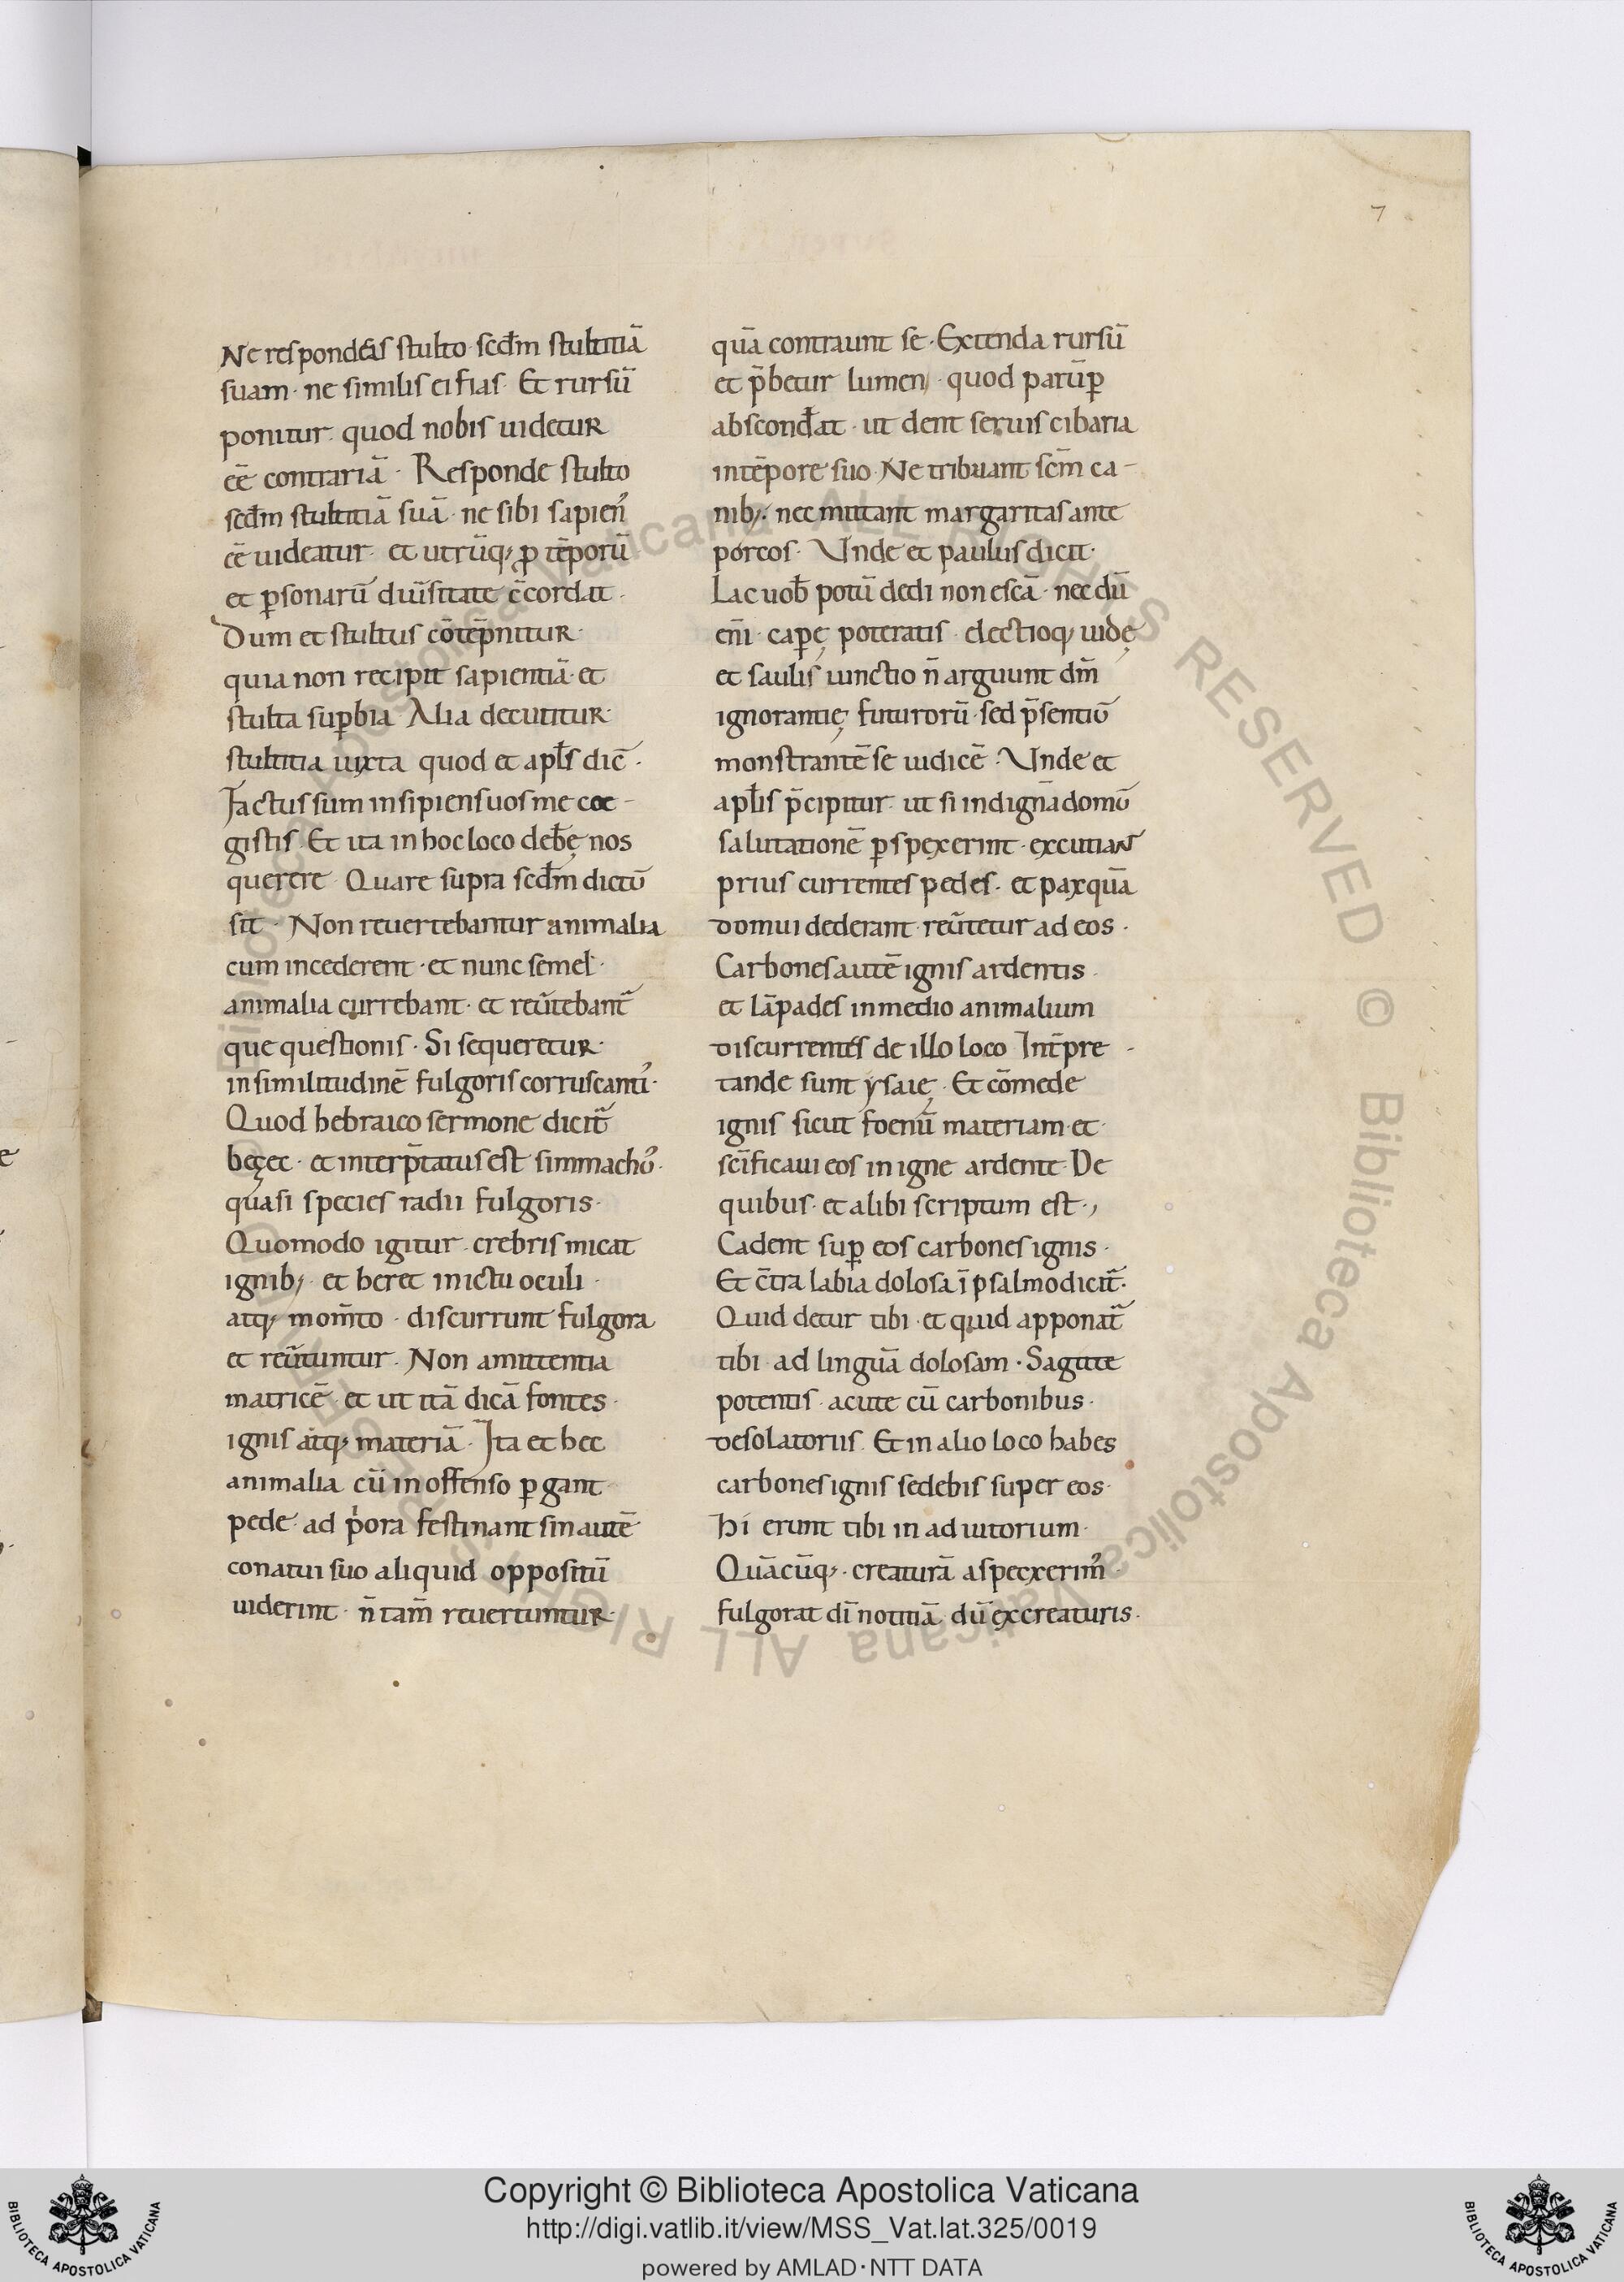 7
Ne respondeas stulto sec̄dm stultitiā
suam · ne similis ei fias · Et rursū
ponitur quod nobis uidetur
eē contrariā · Responde stulto
sec̄dm stultitiā suā · ne sibi sapien᾿
eē uideatur · et utrūq; ꝓ tēporū
et ꝑsonarū diu͛sitate c̄cordat ·
Dum et stultus cōtēpnitur ·
quia non recipit sapientiā · et
stulta suꝑbia Alia decutitur ·
stultitia iuxta quod et apl̄s dic̄ ·
Factus sum insipiens uos me coe -
gistis · Et ita in hoc loco deb̄ę nos
querere · Quare supra sec̄dm dictū
sit · Non reuertebantur animalia
cum incederent · et nunc semel ·
animalia currebant · et reu͛tebant᷑
que questionis · Si sequeretur ·
in similitudinē fulgoris corruscanti᾿ ·
Quod hebraico sermone dicit᷑
beçec · et interp̄tatus est simmachu᾿ ·
quasi species radii fulgoris ·
Quomodo igitur · crebris micat
ignib; · et beret inictu oculi ·
atq; mom̄to · discurrunt fulgora
et reu͛tuntur · Non amittentia
matricē · et ut itā dicā fontes ·
ignis atq; materiā · Ita et hec
animalia cū inoffenso ꝑgant
pede · ad p̍ora festinant sin autē
conatui suo aliquid oppositū
uiderint · n̄ tam̄ reuertuntur ·
quā contraunt se · Extenda rursū
et p̄betur lumen · quod parūꝑ
abscond̄at · ut dent seruis cibaria
in tēpore suo · Ne tribuant sc̄m ca -
nib; · nec mittant margaritas ante
porcos · Unde et paulus dicit ·
Lac uob̄ potū dedi non escā · nec dū
eni̅ · caꝑę poteratis · electioq; uidę
et saulis iunctio n̄ arguunt dm̄
ignorantię futurorū · sed p̄sentiū
monstrantē se iudicē · Unde et
apl̄is p̄cipitur · ut si indignā domū
salutationē ꝑspexerint · excutiant
prius currentes pedes · et pax quā
domui dederant · reu͛tetur ad eos ·
Carbones autē ignis ardentis ·
et lāpades in medio animalium
discurrentes de illo loco Int̄pre -
tande sunt ysaię · Et cōmede
ignis sicut foenū materiam · et ·
sc̄ificaui eos in igne ardente · De
quibus · et alibi scriptum est ·,
Cadent suꝑ eos carbones ignis ·
Et c̄tra labia dolosa ī psalmo dicit᷑ ·
Quid detur tibi · et quid apponat᷑
tibi · ad linguā dolosam · Sagitte
potentis · acute cū carbonibus ·
desolatoriis · Et in alio loco habes
carbones ignis sedebis super eos ·
hi erunt tibi in adiutorium ·
Quācūq; · creaturā aspexerim᾿ ·
fulgorat di̅ notitiā · dū ex creaturis ·
Copyright © Biblioteca Apostolica Vaticana
http://digi.vatlib.it/view/MSS_Vat.lat.325/0019
powered by AMLAD·NTT DATA
BIBLIOTECA APOSTOLICA VATICANA
BIBLIOTECA APOSTOLICA VATICANA
© Biblioteca Apostolica Vaticana ALL RIGHTS RESERVED